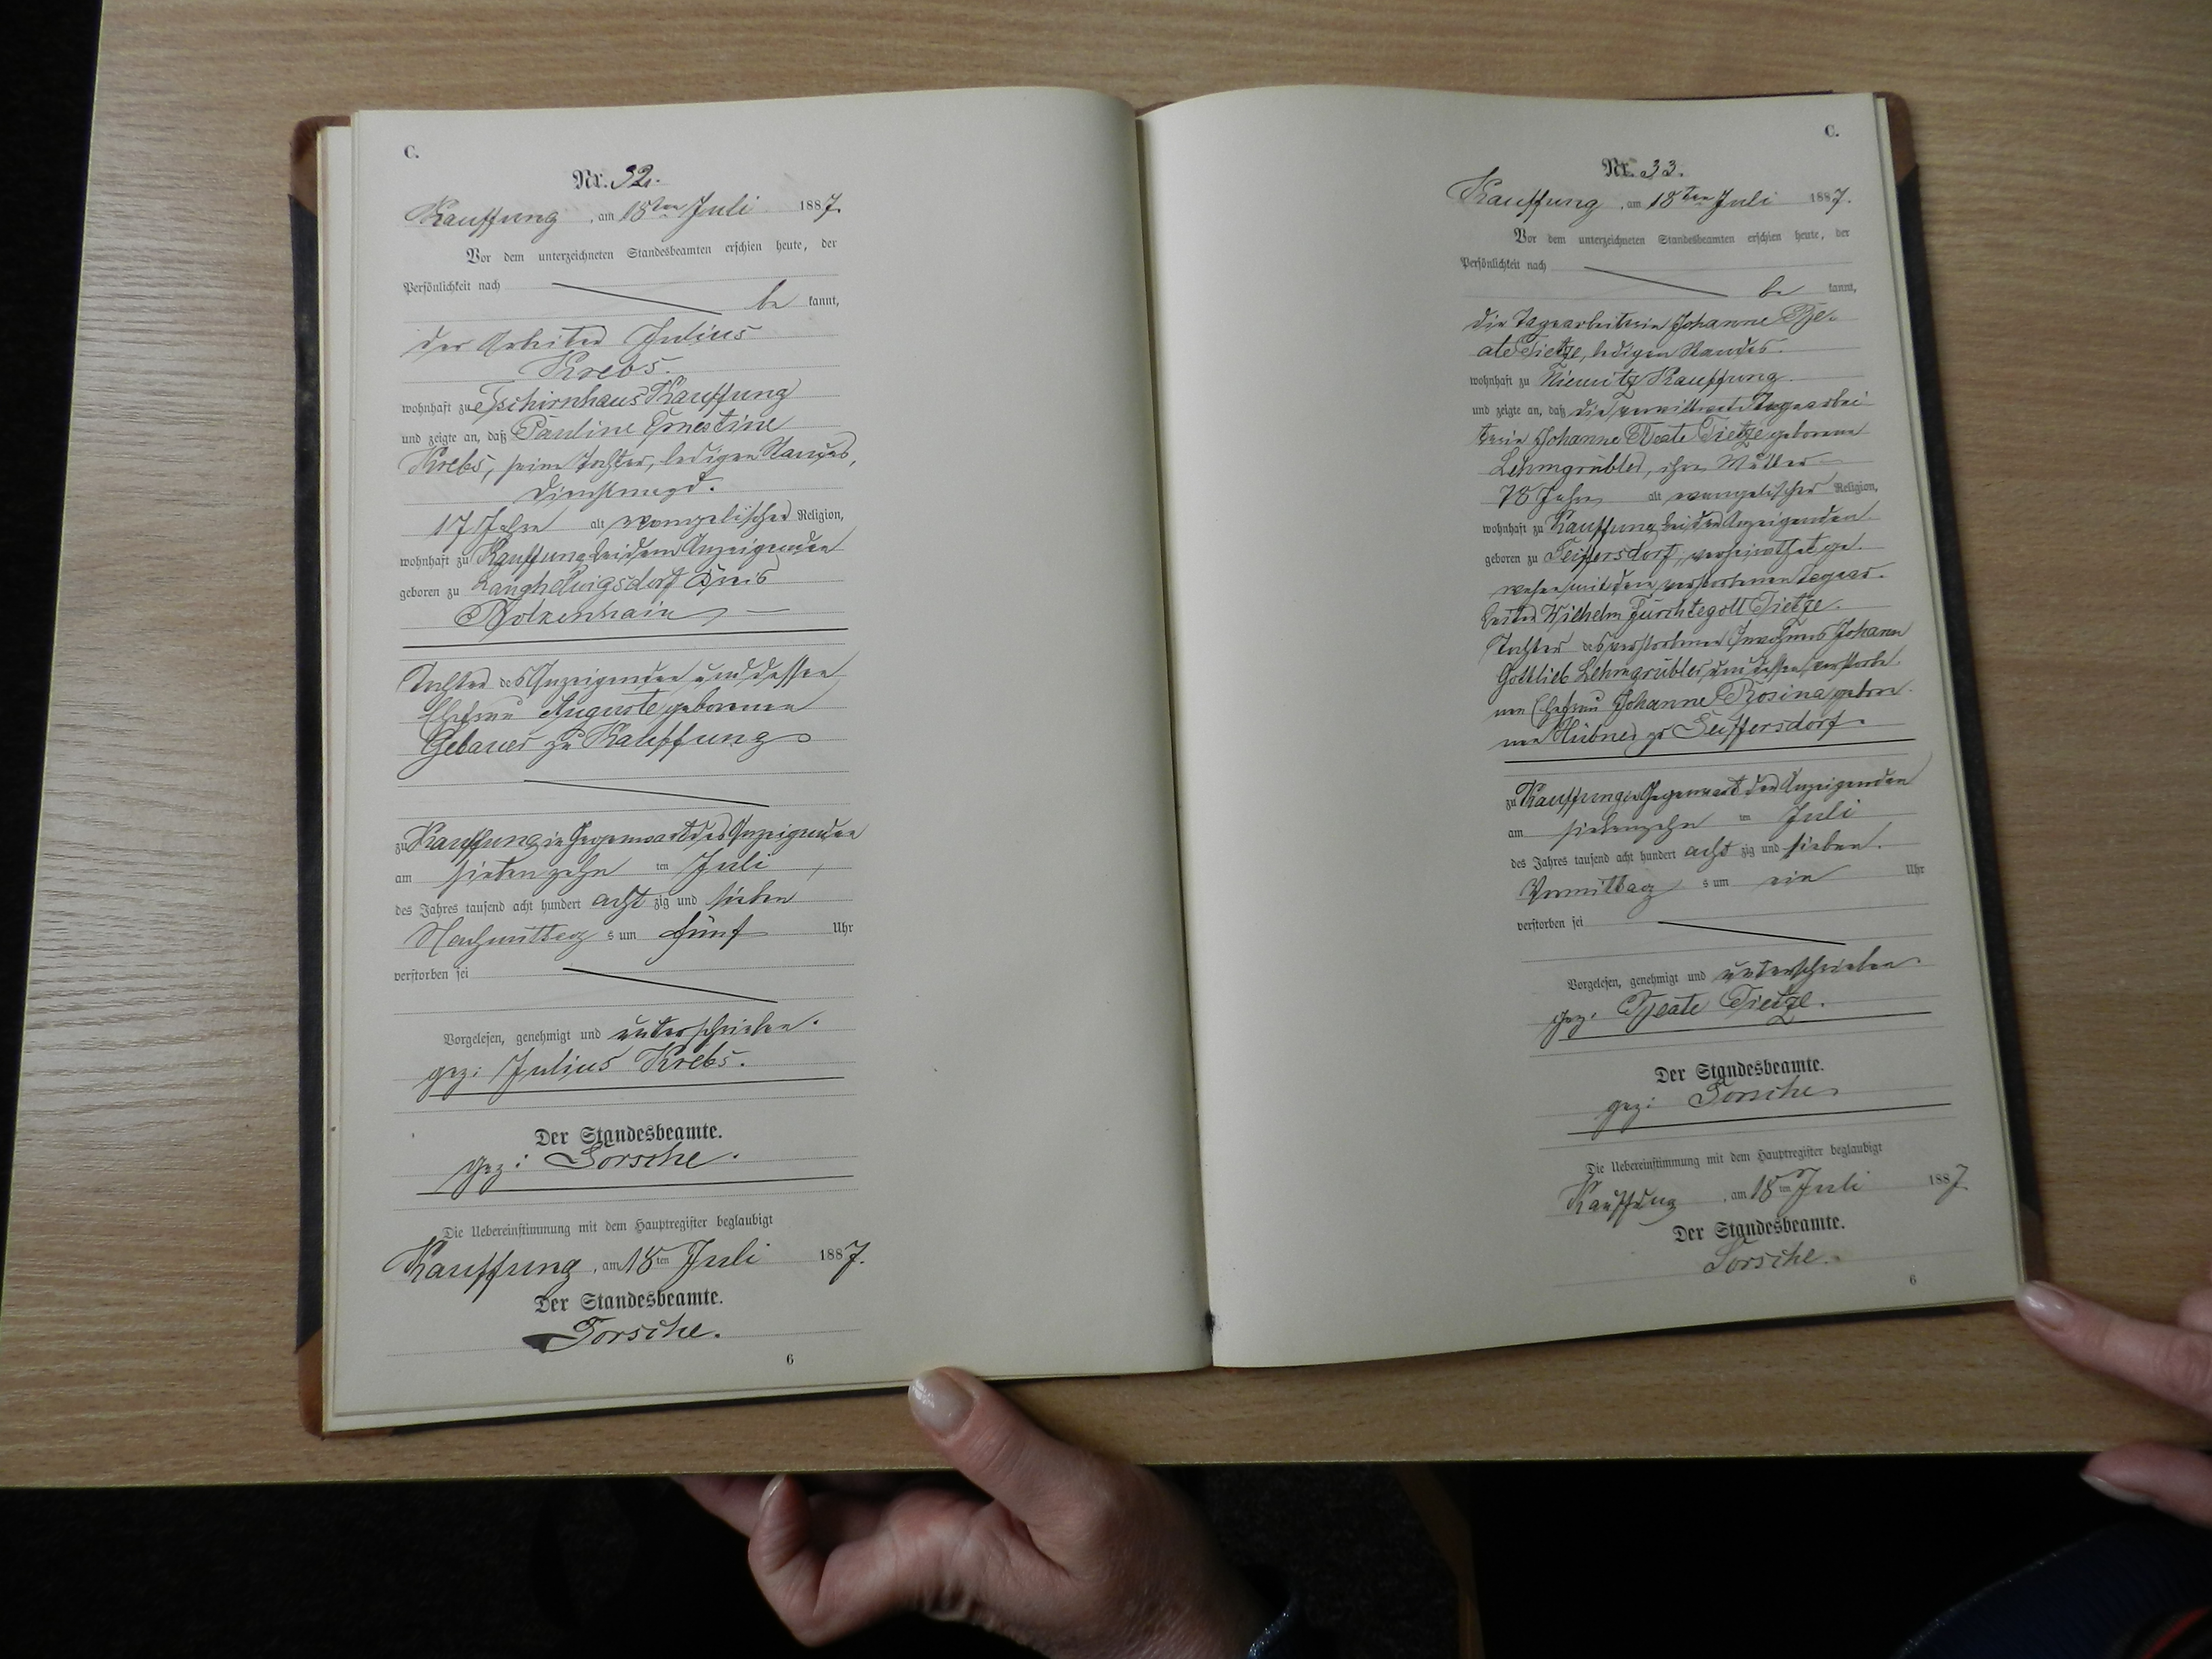 C.
Nr. 32.
Kauffung, am 18ten Juli 1887.
Vor dem unterzeichneten Standesbeamten erschien heute, der
Persönlichkeit nach
be kannt,
der Arbeiter Julius
Krebs.
wohnhaft zu Tschirnhaus Kauffung
und zeigte an, daß Pauline Ernestine
Krebs, seine Tochter, ledigen Standes,
Dienstmagd.
17 Jahre alt evangelischer Religion,
wohnhaft zu Kauffung bei dem Anzeigenden
geboren zu Langhelwigsdorf Kreis
Bolkenhain,
Tochter des Anzeigenden und dessen
Ehefrau Auguste geborenen
Gebauer zu Kauffung
zu Kauffung in Gegenwart des Anzeigenden
am siebenzehn ten Juli
des Jahres tausend acht hundert acht zig und sieben
Nachmittag s um fünf Uhr
verstorben sei
Vorgelesen, genehmigt und unterschrieben.
gez: Julius Krebs.
Der Standesbeamte.
gez: Torsche.
Die Uebereinstimmung mit dem Hauptregister beglaubigt
Kauffung, am 18ten Juli 1887.
Der Standesbeamte.
Torsche.
6
C.
Nr. 33.
Kauffung, am 18ten Juli 1887.
Vor dem unterzeichneten Standesbeamten erschien heute, der
Persönlichkeit nach
be kannt,
die Tagearbeiterin Johanne Be-
ate Tietze, ledigen Standes.
wohnhaft zu Niemitz Kauffung
und zeigte an, daß die verwittwete Tagearbei
terin Johanne Beate Tietze geborene
Lehmgrübler, ihre Mutter
78 Jahre alt evangelischer Religion,
wohnhaft zu Kauffung bei der Anzeigenden
geboren zu Seiffersdorf, verheirathet ge-
wesen mit dem verstorbenen Tagear-
beiter Wilhelm Fürchtegott Tietze.
Tochter des verstorbenen Inwohners Johann
Gottlieb Lehmgrübler und dessen verstorbe-
nen Ehefrau Johanne Rosina gebore-
nen Hübner zu Seiffersdorf.
zu Kauffung in Gegenwart der Anzeigenden
am siebenzehn ten Juli
des Jahres tausend acht hundert acht zig und sieben.
Vormittag s um ein Uhr
verstorben sei
Vorgelesen, genehmigt und unterschrieben.
gez: Beate Tietze.
Der Standesbeamte.
gez: Torsche
Die Uebereinstimmung mit dem Hauptregister beglaubigt
Kauffung, am 18ten Juli 1887
Der Standesbeamte.
Torsche.
6